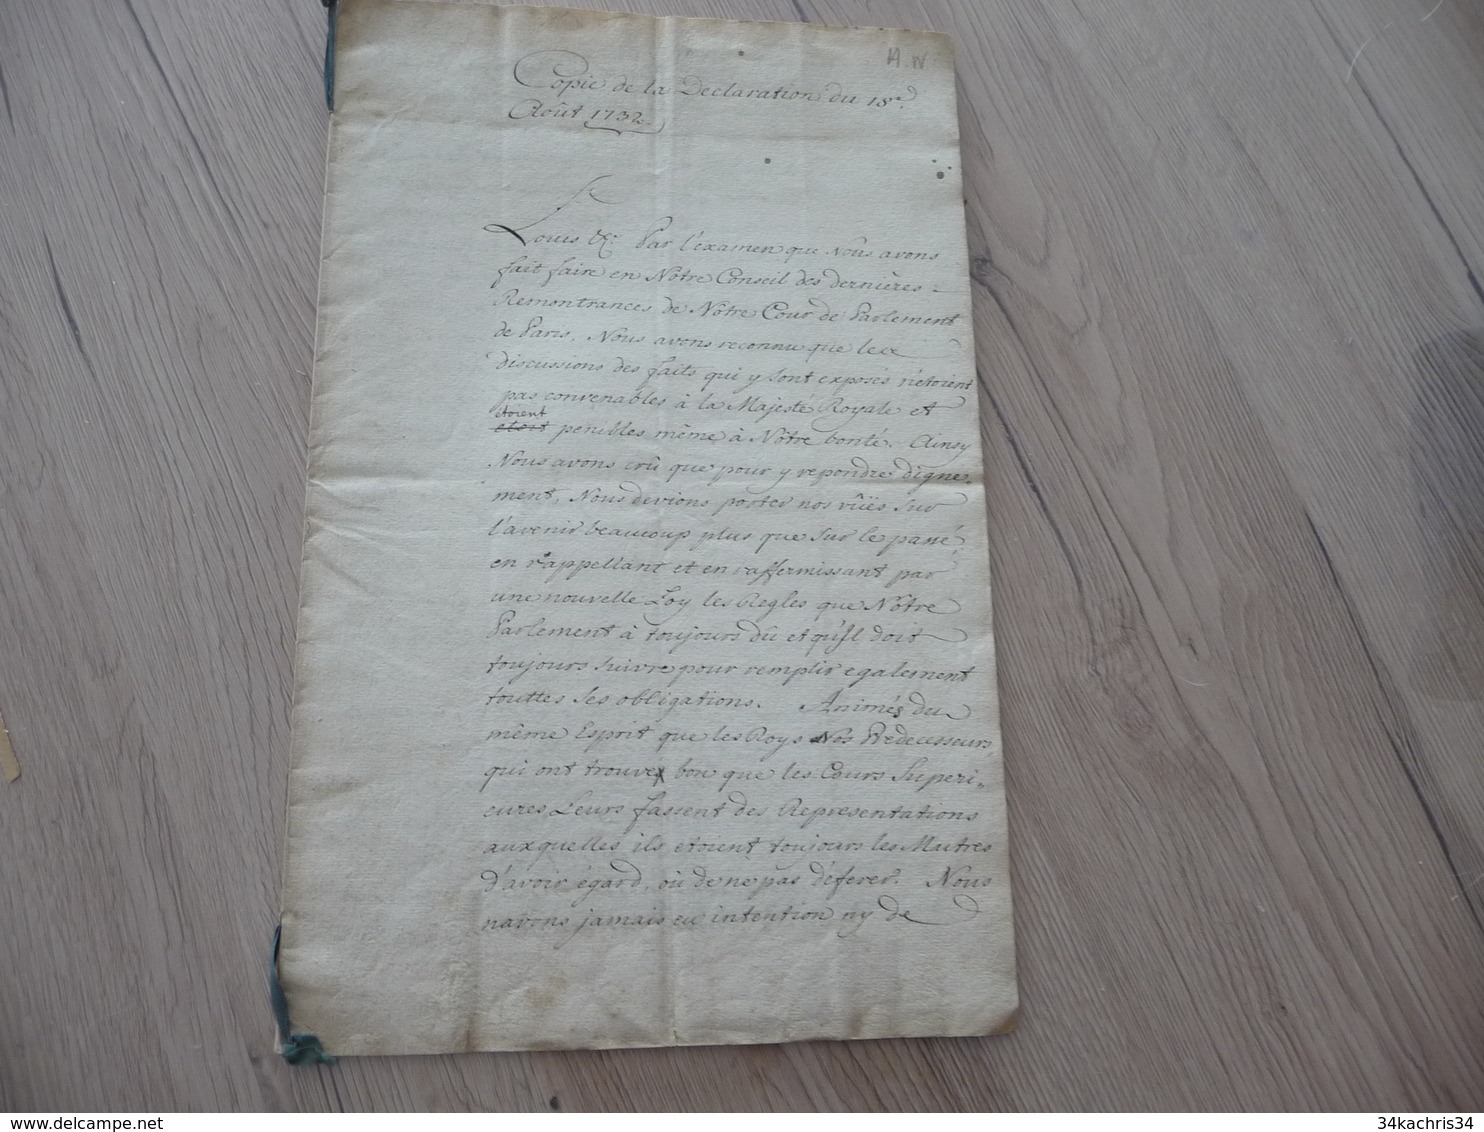 Copie de la Declaration du 18.e
Août 1732.
Louis &c. Par l'examen que Nous avons
fait faire en Notre Conseil des dernières
Remontrances de Notre Cour de Parlement
de Paris, Nous avons reconnu que les
discussions des faits qui y sont exposés n'etoient
pas convenables à la Majesté Royale et
etoient
etoit penibles même à Notre bonté. Ainsy
Nous avons crû que pour y repondre digne-
ment, Nous devions porter nos vûës sur
l'avenir beaucoup plus que sur le passé,
en rappellant et en raffermissant par
une nouvelle Loy les Regles que Notre
Parlement à toujours dû et qu'Il doit
toujours suivre pour remplir egalement
touttes ses obligations. Animés du
même Esprit que les Roys Nos Predecesseurs,
qui ont trouvé bon que les Cours Superi-
eures Leurs fassent des Representations
auxquelles ils etoient toujours les Maitres
d'avoir égard, où de ne pas déferer. Nous
navons jamais eu intention ny de
34kachris34
34kachris34